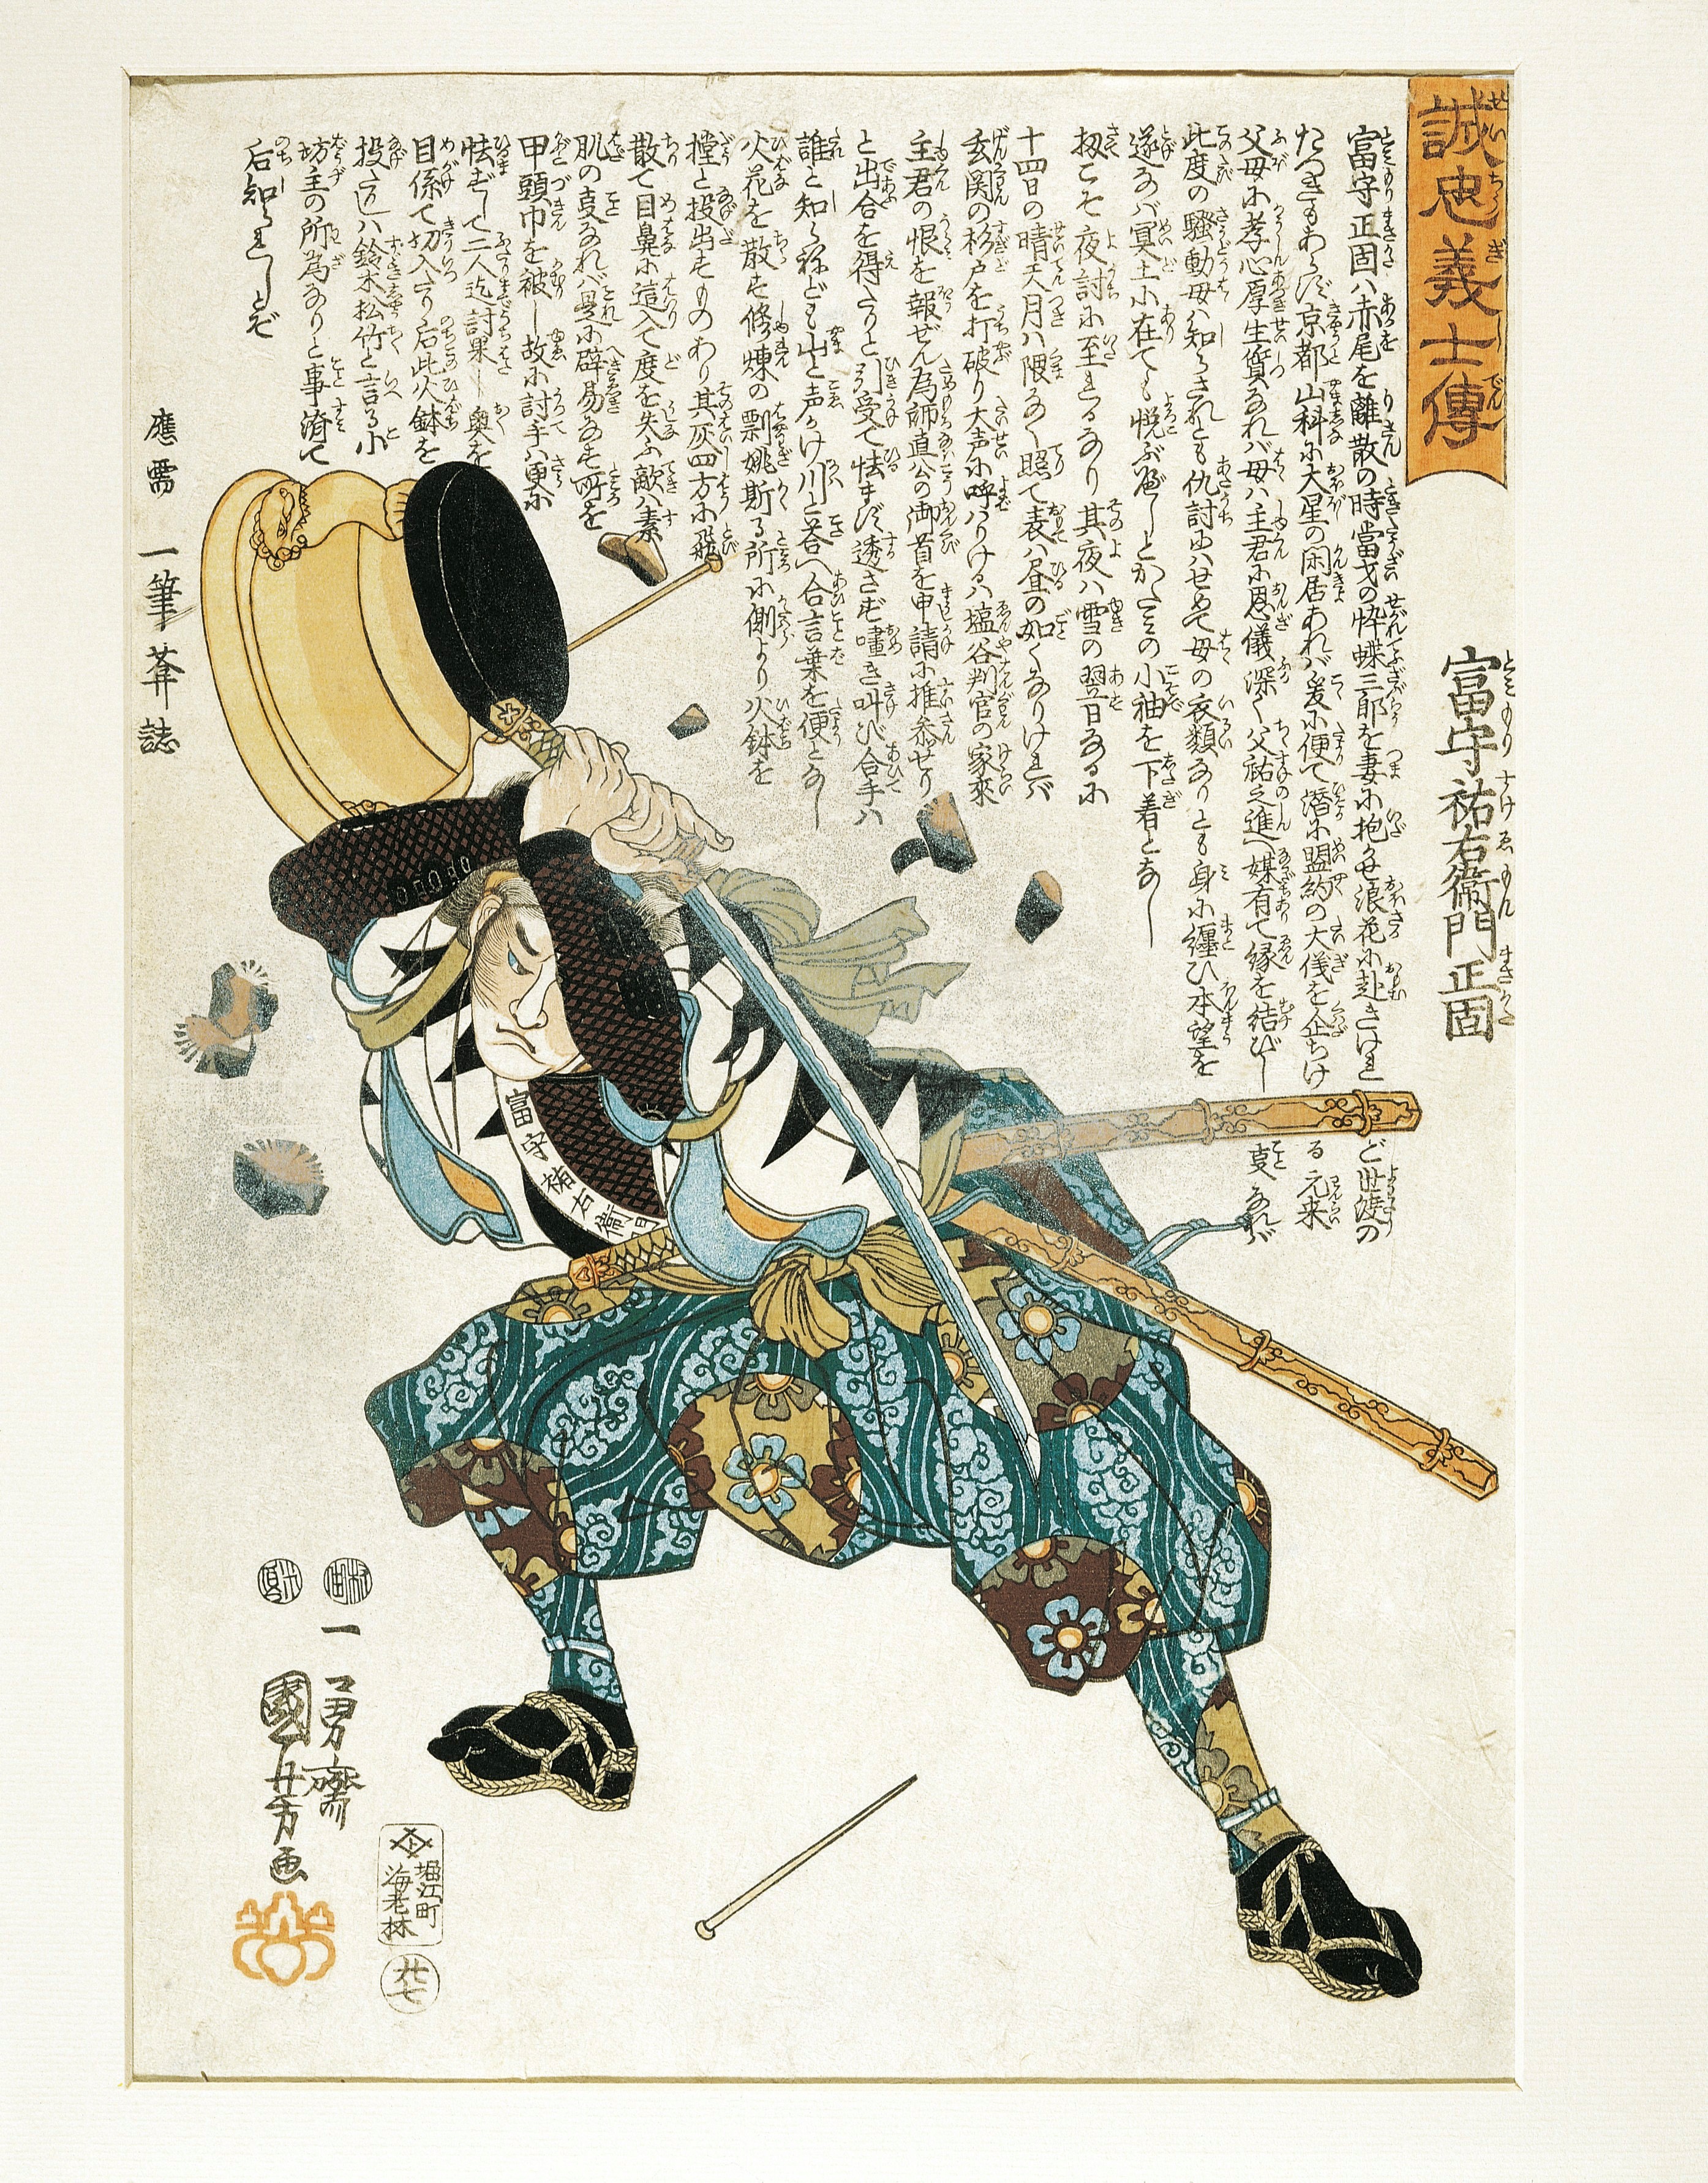 誠忠義士傳
せいちうぎしでん
富守祐右衛門正固
とみのりすけゑもんまさかた
富守正固ハ赤尾を離散の時當戈の忰蝶三郎を妻に抱かせ浪花に赴きけれど世渡の
たつきもあらず京都山科に大星の閑居あれバ爰に便て潜に盟約の大儀を企ちける元来
父母に孝心厚生質なれバ母ハ主君に恩儀深く父祐之進へ媒有て縁を結びし㕝なれバ
此度の騒動母ハ知らされども仇討にハせめて母の衣類なりとも身に纏ひ本望を
遂なバ冥土に在ても悦ぶ可しとかたミの小袖を下着となし
扨こそ夜討に至れるなり其夜ハ雪の翌日なるに
十四日の晴天月ハ隈なく照て表ハ昼の如くなりけれバ
玄関の杉戸を打破り大声に呼ハりけるハ塩谷判官の家來
主君の恨を報ぜん為師直公の御首を申請に推参せり
と出合を得たりと引受て怯まず透さず嚄き叫び合手ハ
誰と知らねども山と声かけ川と荅へ合言葉を便となし
火花を散す修煉の剽姚斯る所に側より火鉢を
摚と投出すものあり其灰四方に飛
散て目鼻に這入て度を失ふ敵ハ素
肌の㕝なれバ是に辟易なす所を
甲頭巾を被し故に討手ハ更に
怯ずして二人迄討果し奥を
目係て切入たり后此火鉢を
投たるハ鈴木松竹と言る小
坊主の所為なりと事済て
后知られしとぞ
應需 一筆葊誌
富守祐右衛門
一勇齋
國芳画
堀江町
海老林
廿七